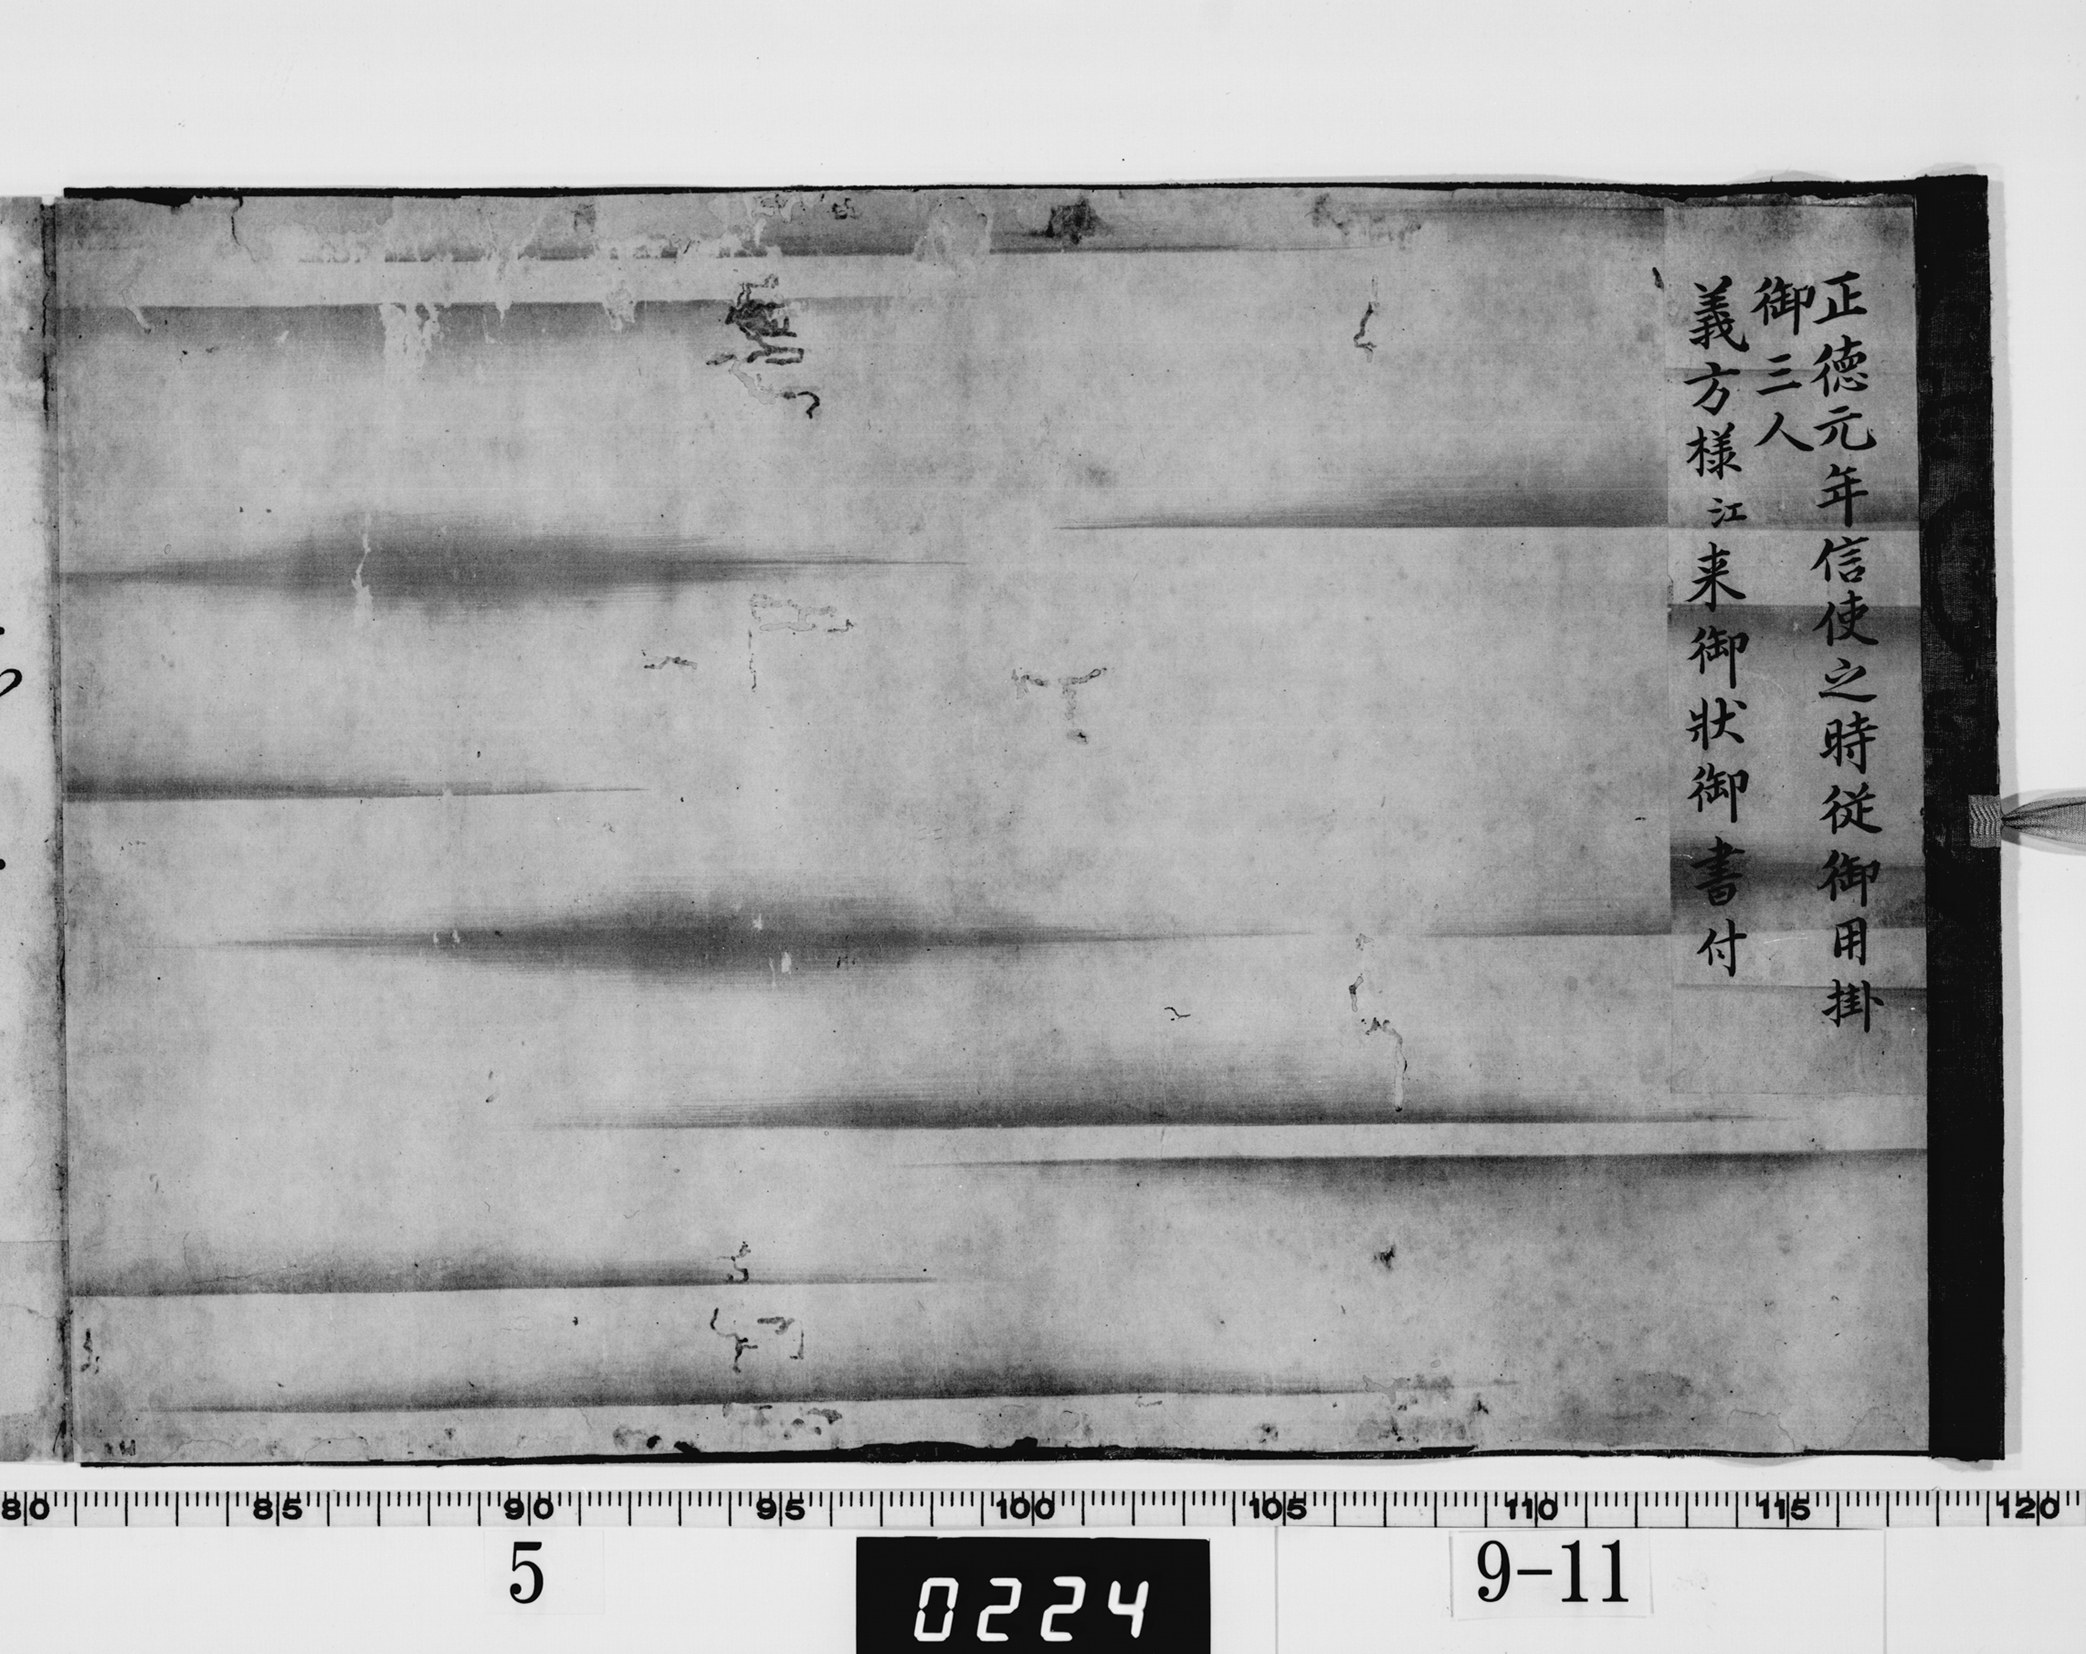 正徳元年信使之時従御用掛
御三人
義方様江来御状御書付
80 85 90 95 100 105 110 115 120
5
0224
9-11